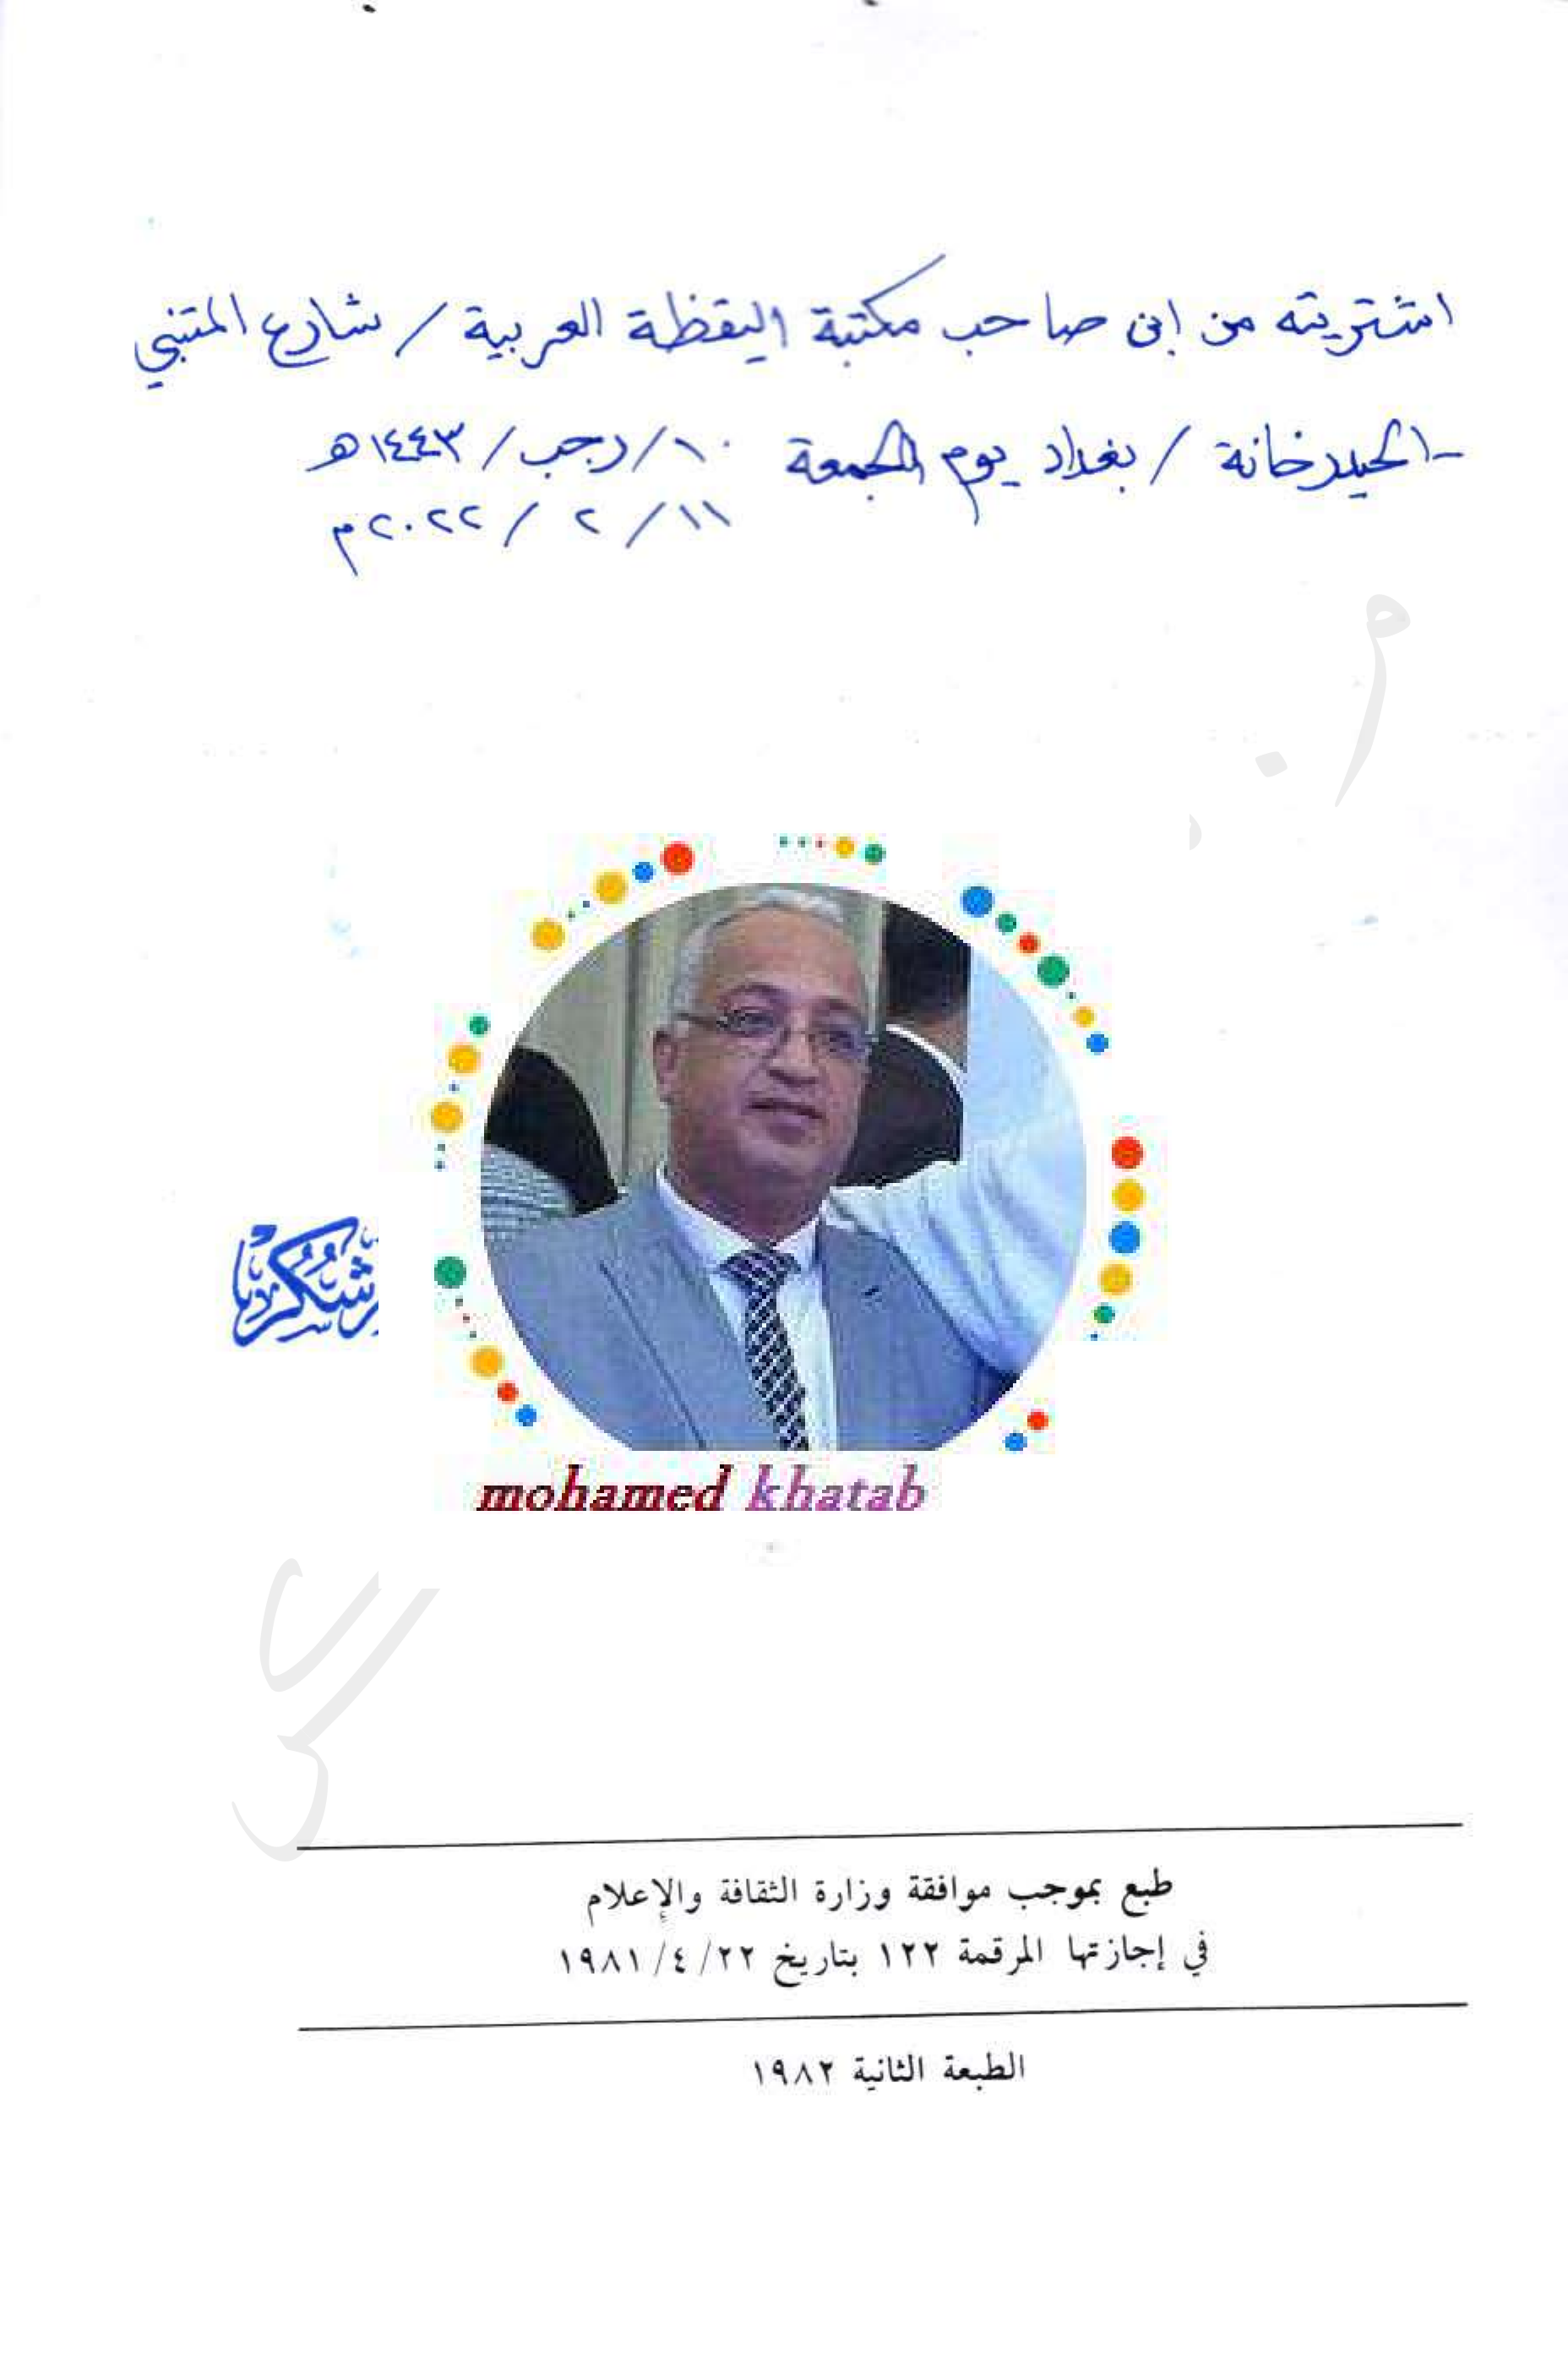 اشتريته من ابن صاحب مكتبة اليقظة العربية / شارع المتنبي
- الحيدرخانة / بغداد يوم الجمعة ١٠/رجب/١٤٤٣هـ
١١/ ٢ / ٢٠٢٢م
mohamed khatab
طبع بموجب موافقة وزارة الثقافة والإعلام
في إجازتها المرقمة ١٢٢ بتاريخ ٢٢/ ٤/ ١٩٨١
الطبعة الثانية ١٩٨٢